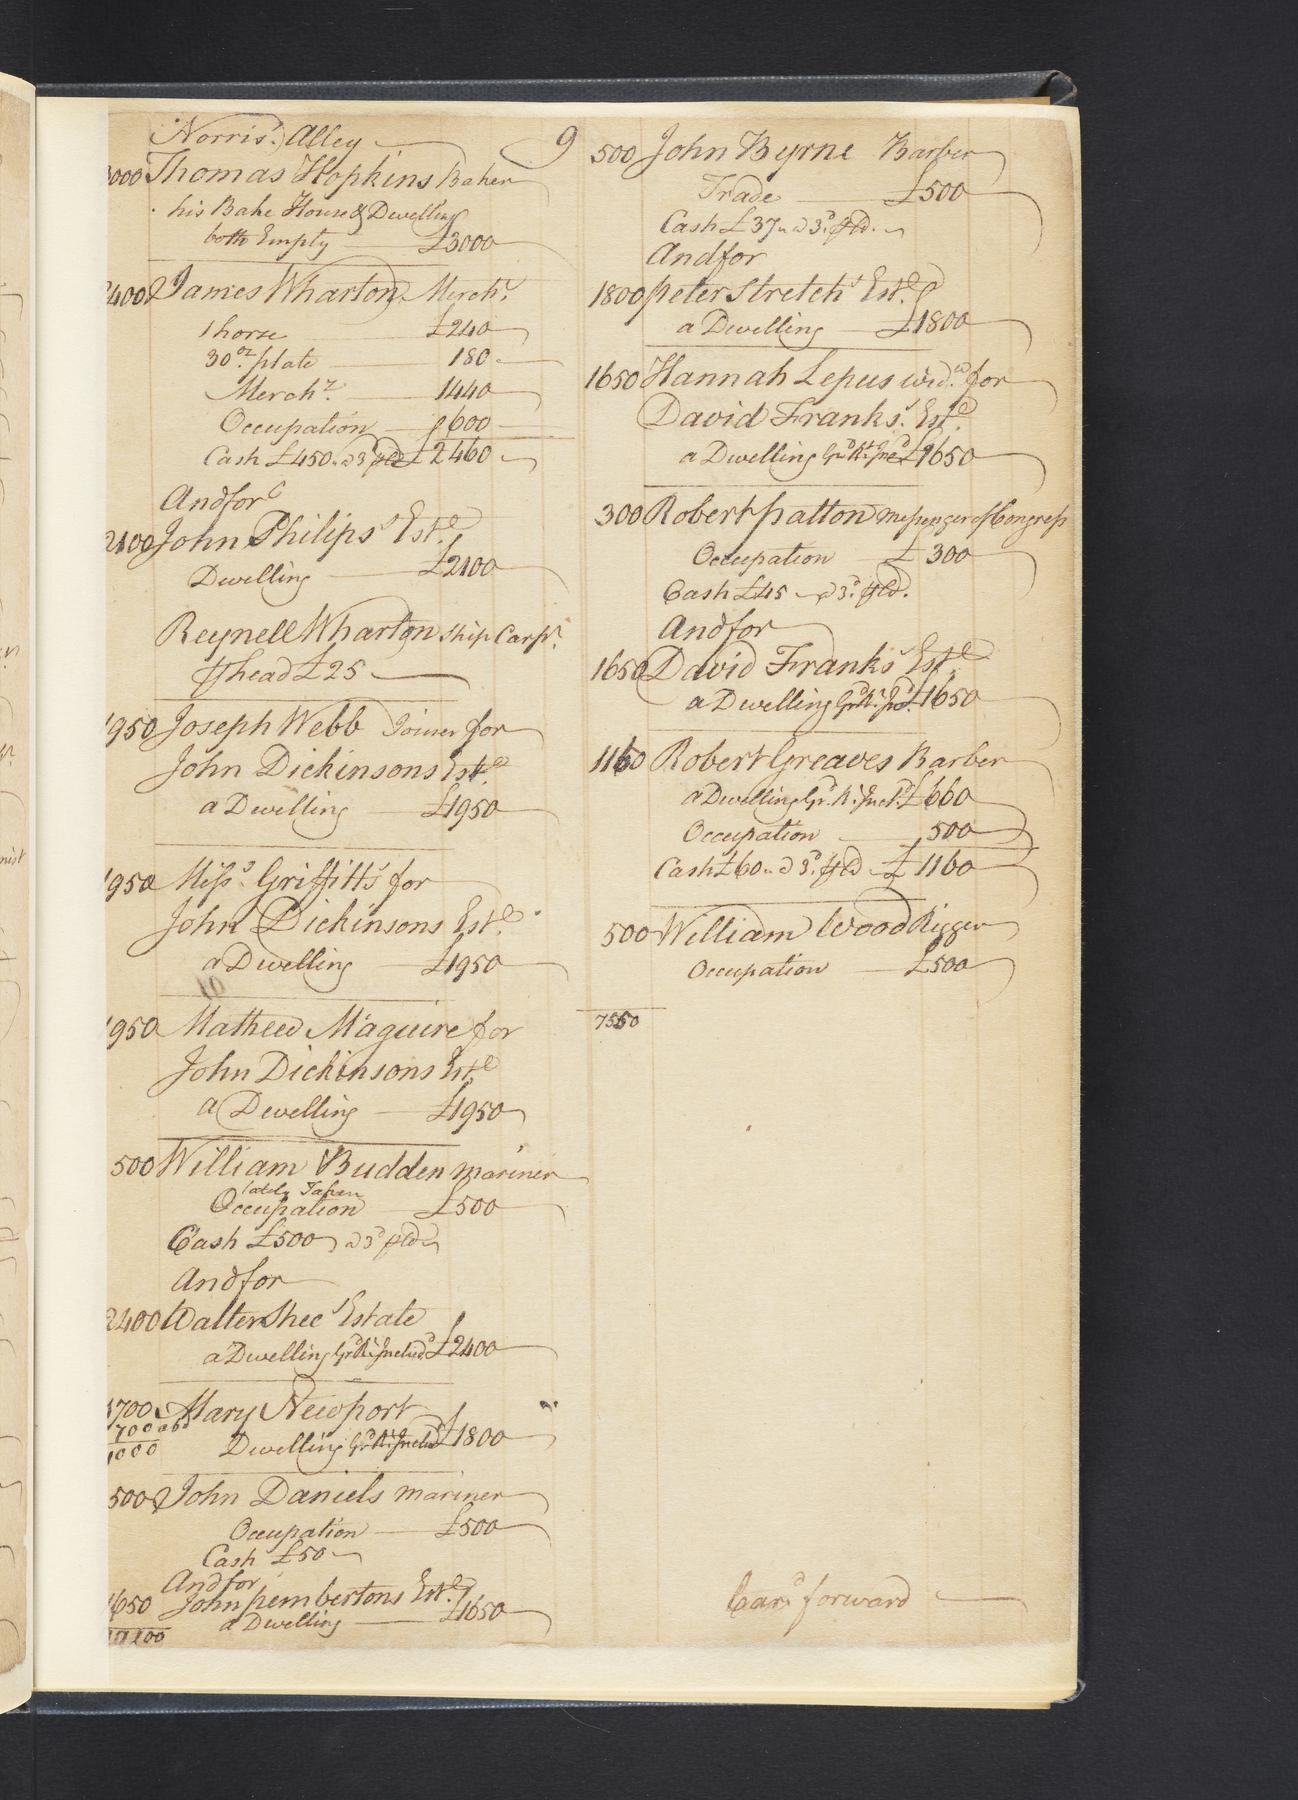 Norris' Alley
9
3000 Thomas Hopkins Baker
his Bake House & Dwelling
both Empty £3000
2400 James Wharton Mercht
1 horse £240
30 oz plate 180
Merchz 1440
Occupation 600
Cash £450 a 3d pd £2460
And for
2100 John Philips' Este
Dwelling £2100
Reynell Wharton Ship Carpr
P head £25
1950 Joseph Webb Joiner for
John Dickinsons Este
a Dwelling £1950
1950 Misss Griffitts for
John Dickinsons Este
a Dwelling £1950
10
1950 Mathew Maguire for
John Dickinsons Este
a Dwelling £1950
500 William Budden mariner
lately Taken
Occupation £500
Cash £500 a 3d pd
And for
2400 Walter Shee' Estate
a Dwelling Gd Rt Includd £2400
1700 Mary Newport
700 abd
1000 Dwelling Gd Rt Includd £1800
500 John Daniels mariner
Occupation £500
Cash £50
And for
1650 John pembertons Este
a Dwelling £1650
500 John Byrne Barber
Trade £500
Cash £37 a 3d pd.
And for
1800 peter Stretch' Este
a Dwelling £1800
1650 Hannah Lepus widw for
David Franks' Este
a Dwelling Gd Rt Incd £1650
300 Robert patton messenger of Congress
Occupation £300
Cash £45 a 3d pd.
And for
1650 David Franks' Este
a Dwelling Gd Rt Incd £1650
1160 Robert Greaves Barber
a Dwelling Gr. Rt Incld £660
Occupation 500
Cash £60 a 3d pd £1160
500 William Wood Rigger
Occupation £500
7550
Card forward